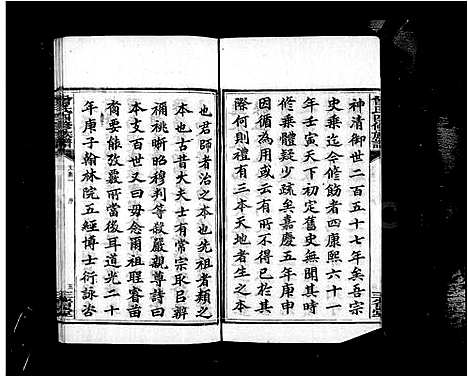 神清御世二百五十七年矣吾宗
史乘迄今修飭者四康熙六十一
年壬寅天下初定舊史無聞其時
修乘體疑少疏矣嘉慶五年庚申
因循為用或云有所不得已於其
際何則禮有三本天地者生之本
也君師者治之本也先祖者類之
本也古昔大夫士有常宗取昆辨
禰祧晰昭穆判等敘嚴親尊詩曰
本支百世又曰毋念爾祖聿
尚要能孜
所當後耳道光二十
年庚子翰林院五經博士衍詠
氏四修族譜
序
三省堂